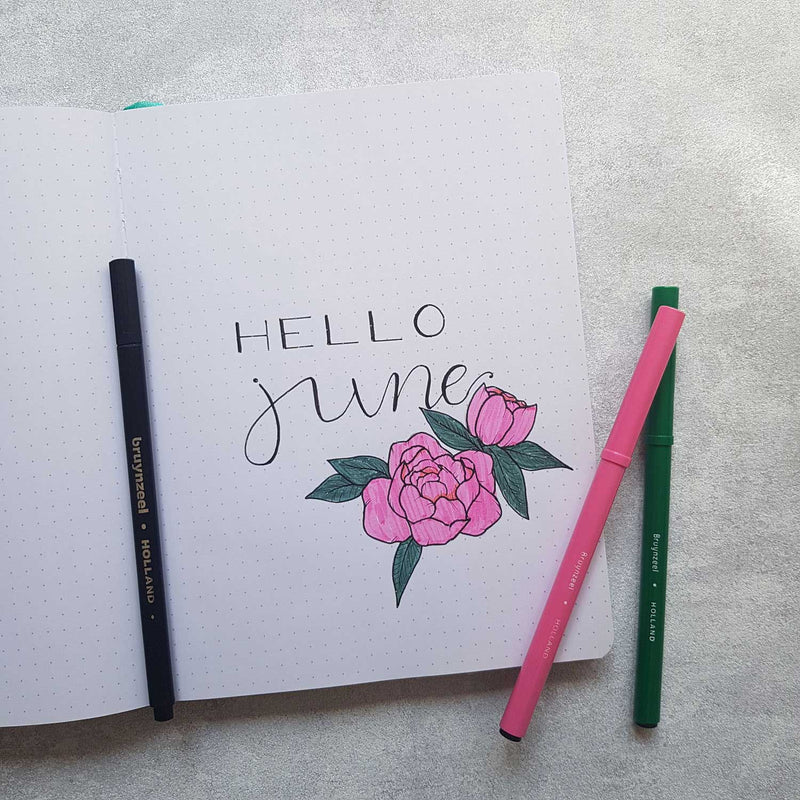 HELLO
june
bruynzeel • HOLLAND •
Bruynzeel • HOLLAND
Bruynzeel • HOLLAND